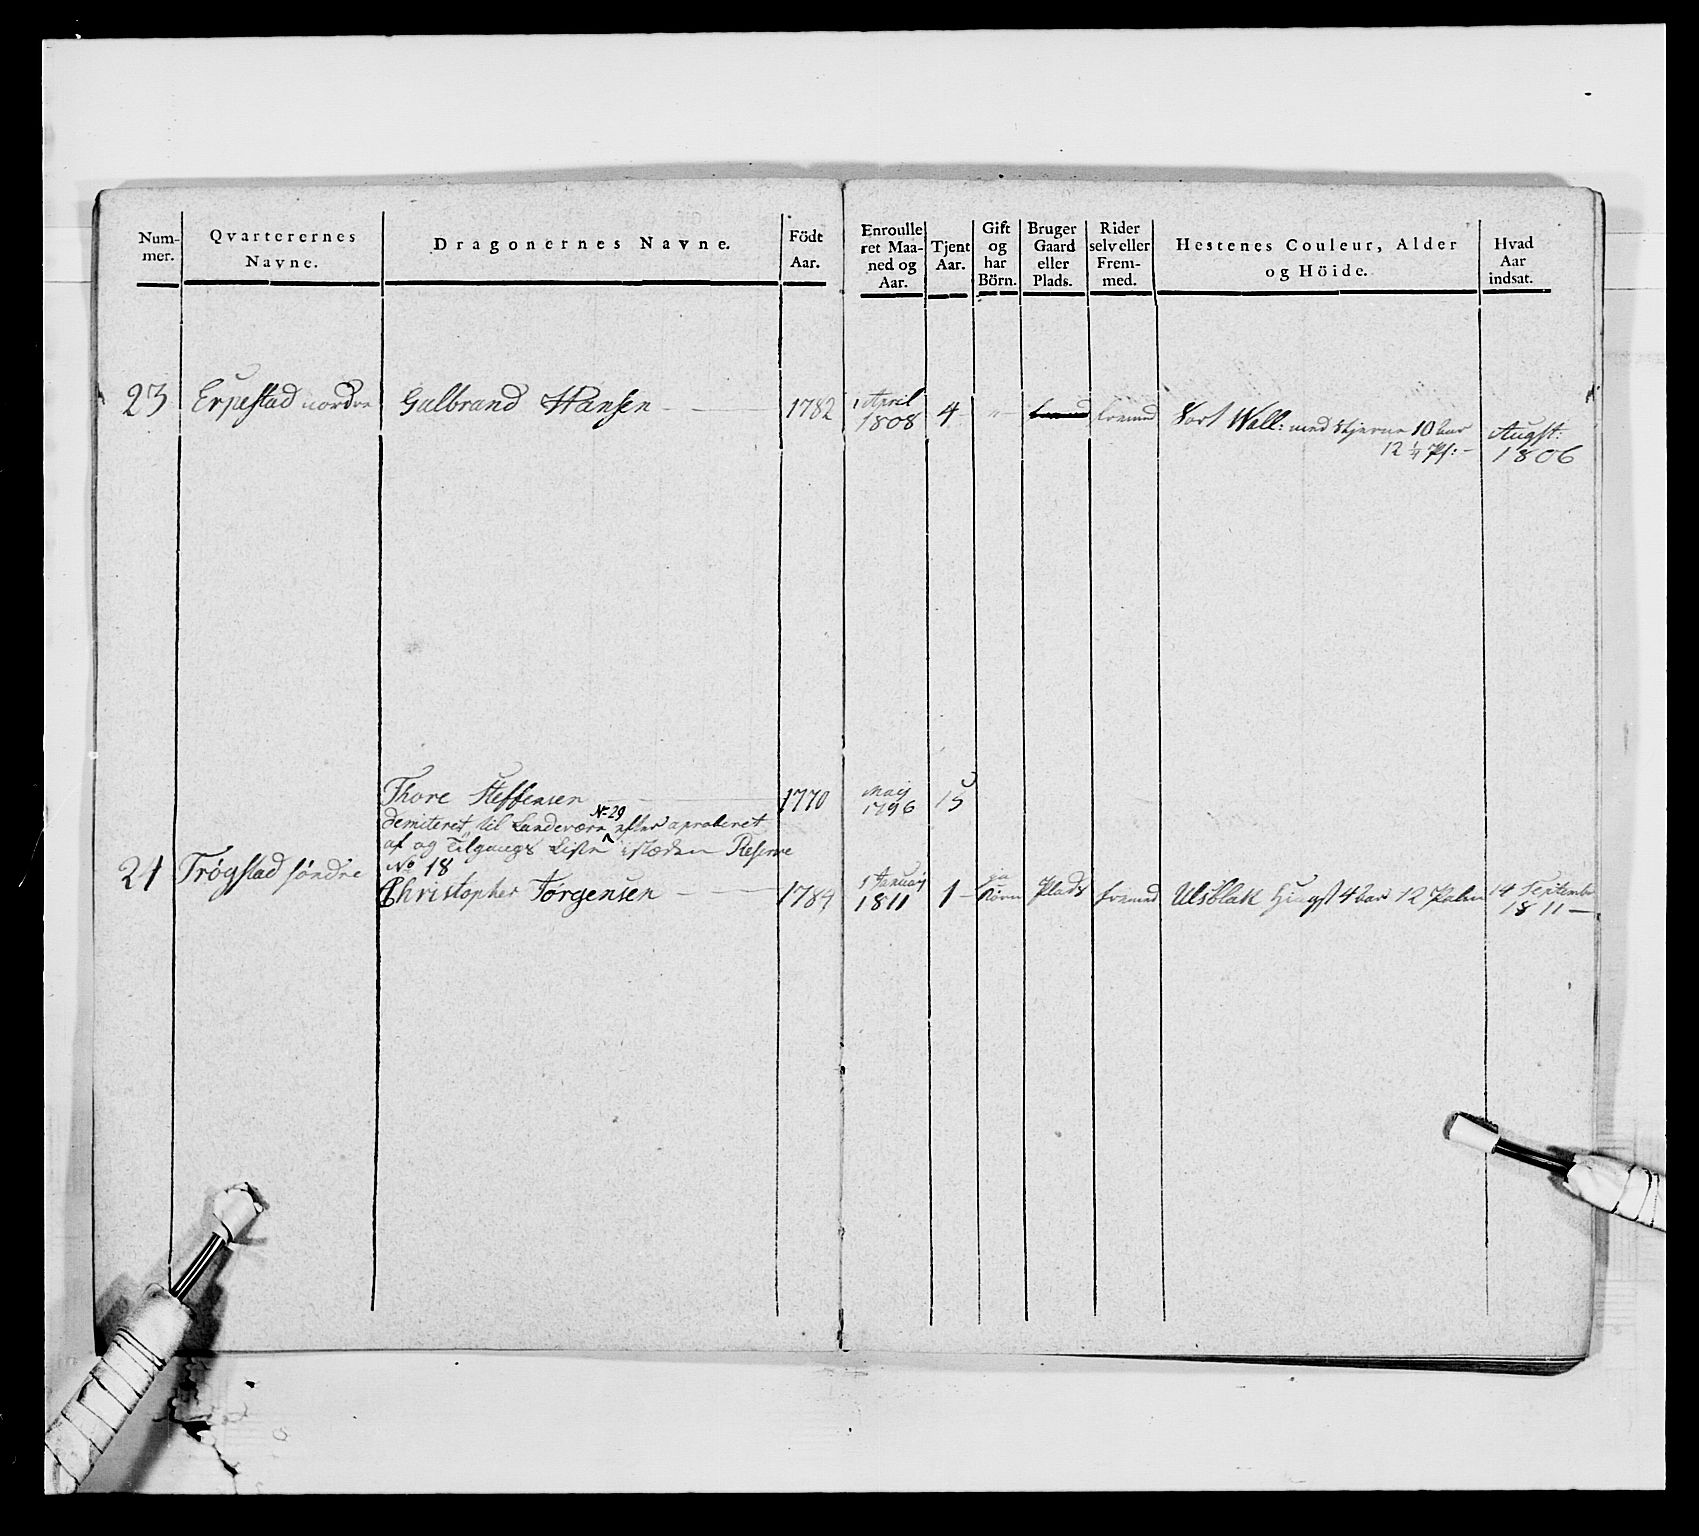 Num-
mer.
Qvarterernes
Navne.
Dragonernes Navne.
Födt
Aar.
Enroulle
ret Maa-
ned og
Aar.
Tjent
Aar.
Gift
og
har
Börn.
Bruger
Gaard
eller
Plads.
Rider
selv eller
Frem-
med.
Hestenes Couleur, Alder
og Höide.
Hvad
Aar
indsat.
23 Erpestad nordre Gulbrand Hansen 1782 1 April 4 " fremed Sort Wall: med Stjerne 10 aar Augst:
1808 12 ¼ Pf: 1806
Thore Steffensen 1770 May 15
1796
No 29
demiteret til Landeværn efter aproberet
af og Tilgangs Liste isteden Reserve
No 18
24 Trøgstad søndre Christopher Torgensen 1784 1 Januarj 1 ja Plads fremed Ulsblak Hingst 4 aar 12 Palm 14 September
1811 Börn 1811